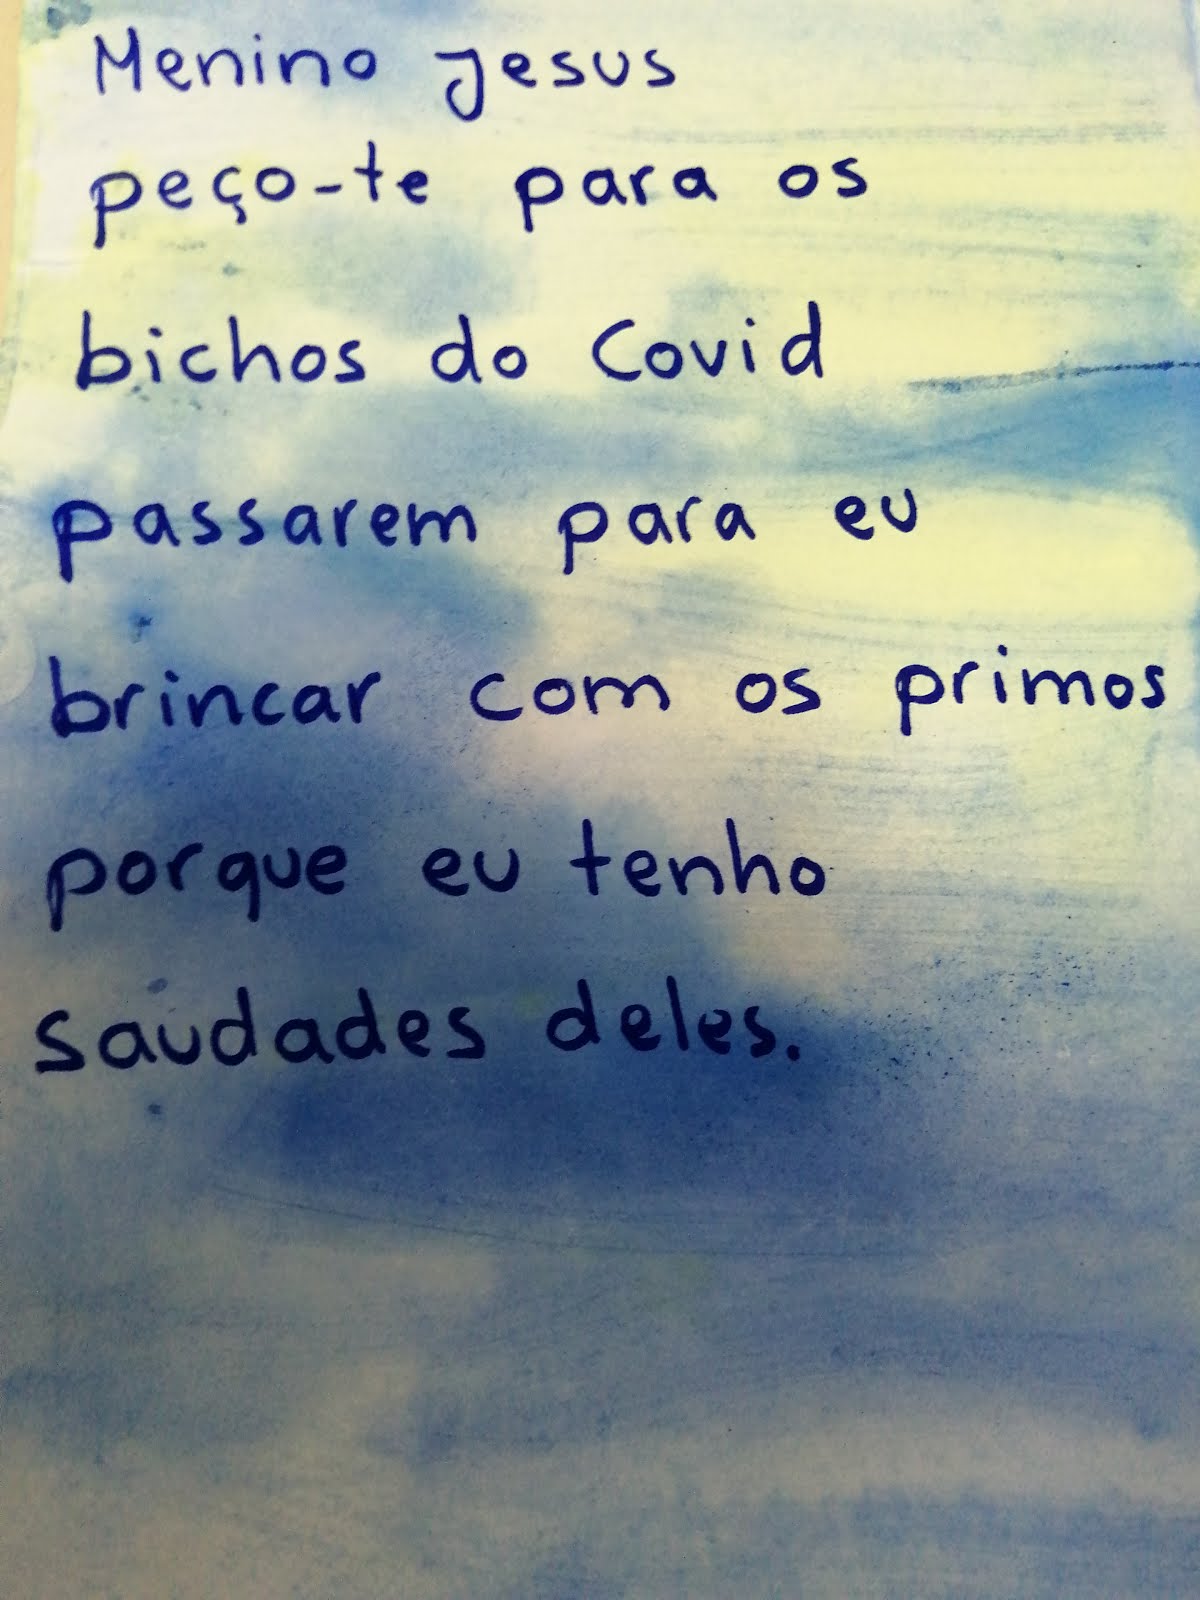 Menino Jesus
peço-te para os
bichos do Covid
passarem para eu
brincar com os primos
porque eu tenho
saudades deles.